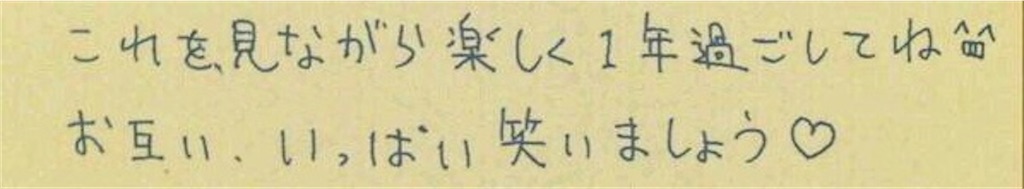 これを、見ながら楽しく1年過ごしてね^^
お互い、いっぱい笑いましょう♡